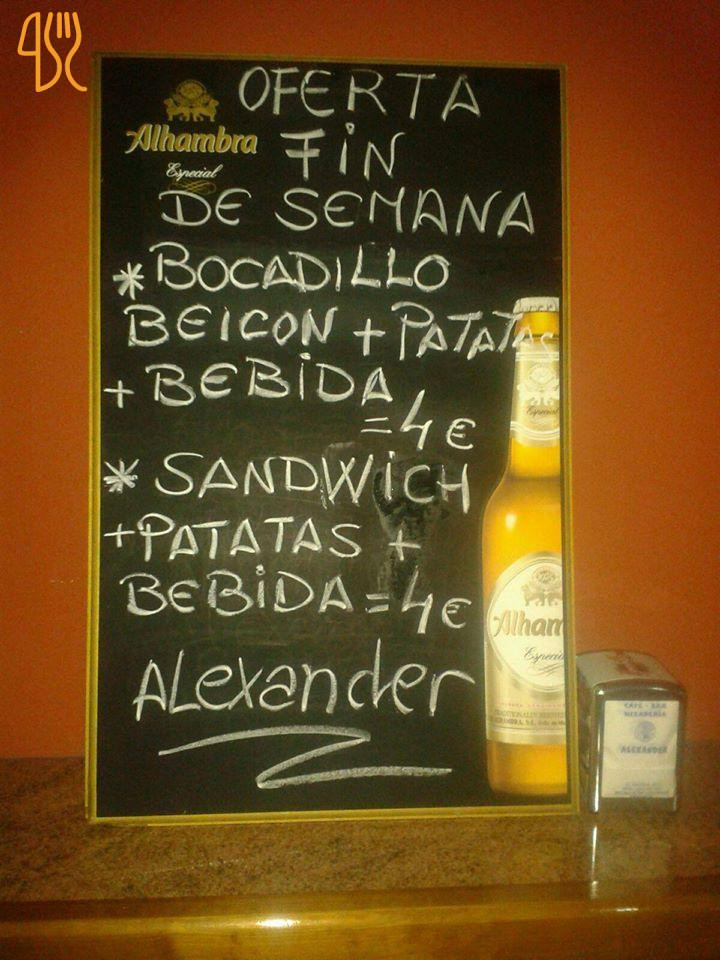 Alhambra
Especial
OFERTA
FIN
DE SEMANA
* BOCADILLO
BEICON + PATATAS
+ BEBIDA
= 4 €
* SANDWICH
+ PATATAS +
BEBIDA = 4 €
ALexander
Especial
Alham
Especial
CAFE - BAR
ALEXANDER